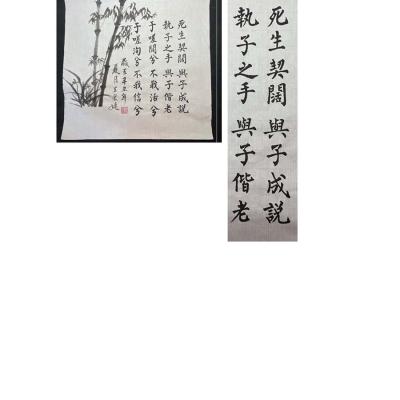 死生契闊 與子成説
執子之手 與子偕老
于嗟闊兮 不我活兮
于嗟洵兮 不我信兮
辛丑年
死生契闊 與子成説
執子之手 與子偕老